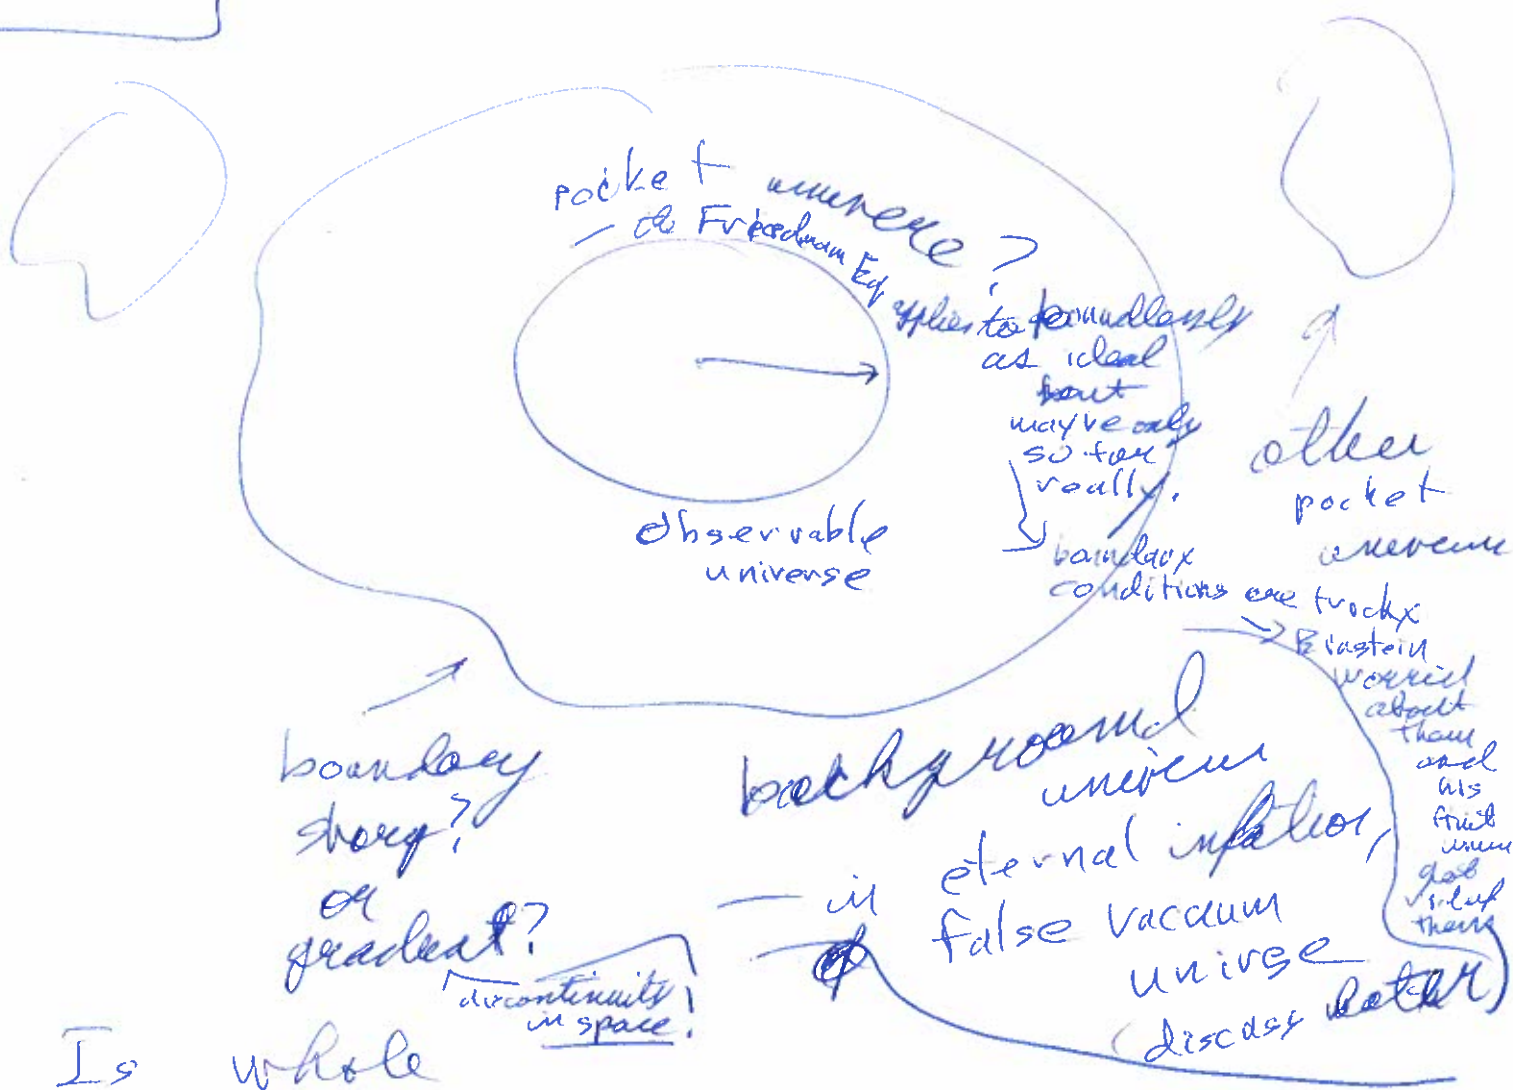 pocket universe?
— the Friedman Eq applies to boundlessly
as ideal
but
maybe only
so far
really.
boundary
conditions are tricky
Einstein
worried
about
them
and
his
got
rid of
them
observable
universe
other
pocket
universe
boundary
sharp?
or
gradual?
discontinuity
in space!
background
universe
— in eternal inflation,
false vacuum
univrse
(discuss later)
Is whole